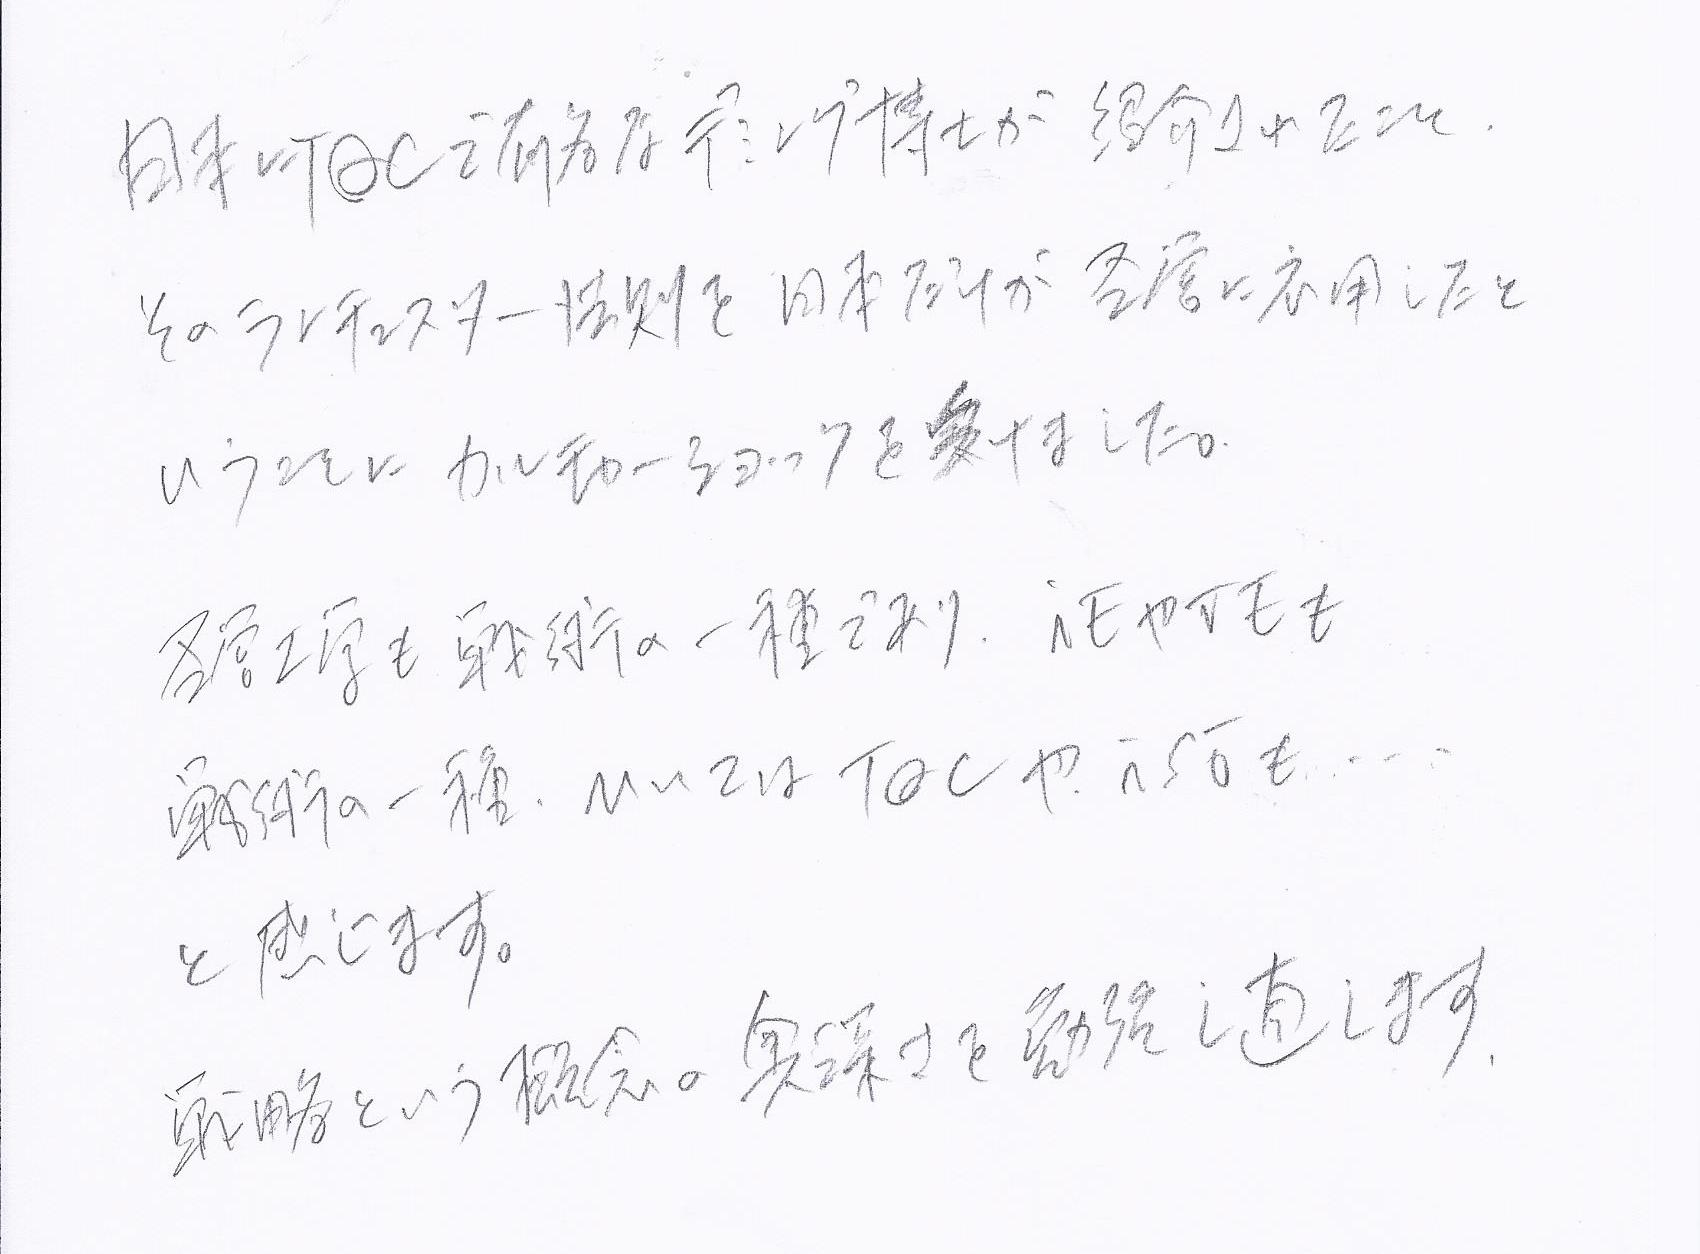 日本にTQCで有名なデミング博士が紹介されたこと、
そのランチェスター法則を日本だけが経営に応用したと
いうことにカルチャーショックを受けました。
経営工学も戦術の一種であり、iEやVEも
戦術の一種、ひいてはTQCやiSOも……
と感じます。
戦略という概念の奥深さを勉強し直します。